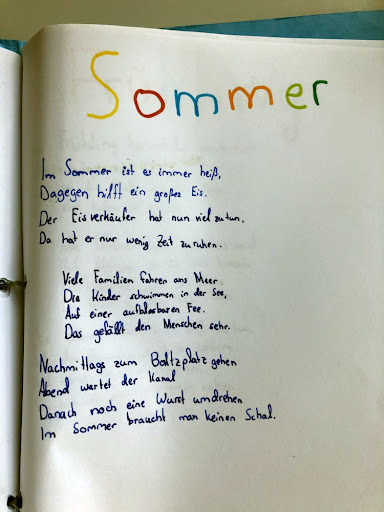 Sommer
Im Sommer ist es immer heiß,
Dagegen hilft ein großes Eis.
Der Eisverkäufer hat nun viel zu tun,
Da hat er nur wenig Zeit zu ruhen.
Viele Familien fahren ans Meer.
Die Kinder schwimmen in der See,
Auf einer aufblasbaren Fee.
Das gefällt den Menschen sehr.
Nachmittags zum Boltzplatz gehen
Abend wartet der Kanal
Danach noch eine Wurst umdrehen
Im Sommer braucht man keinen Schal.